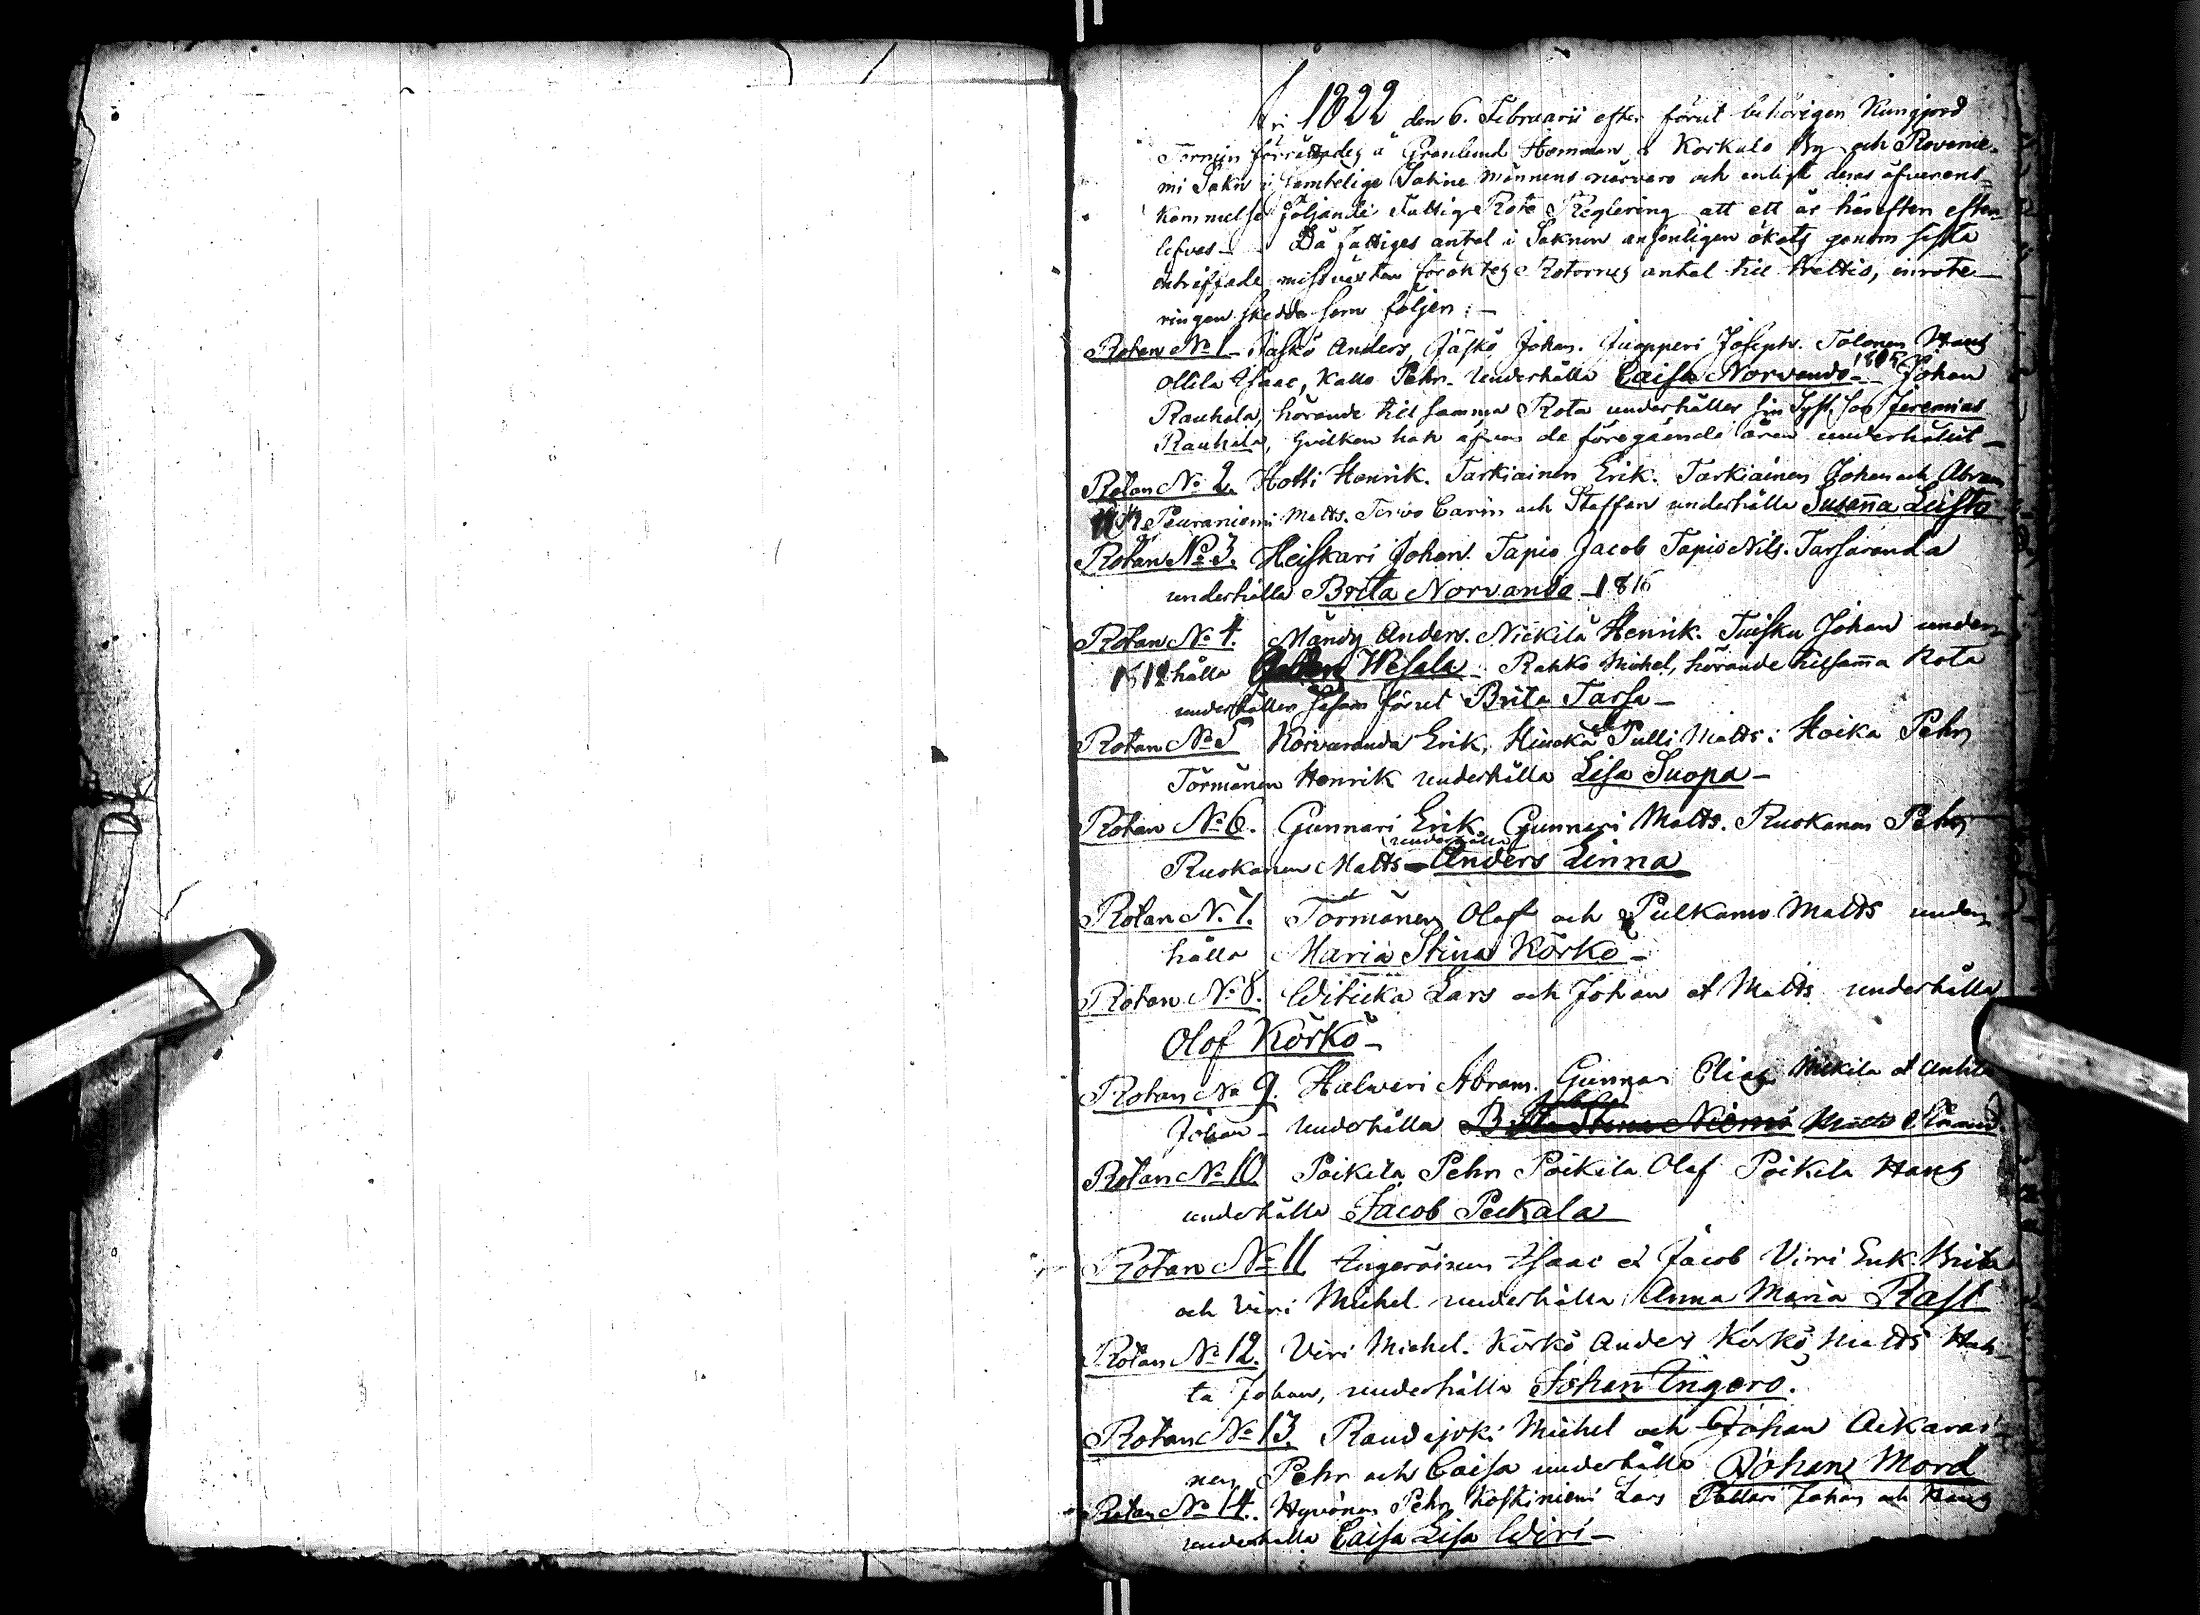 1822 den 6. Februarii efter förut behörigen Kungjord
Termin förrättades å Grönlund Hemman i Korkalo By och Rovanie-
mi Sokn i samtelige Sokne männens närvaro och enligt deras öfverens-
kommelse följande Fattig Rote Reglering att ett år härefter efter-
lefvas - Då fattiges antal i Soknen ansenligen ökats genom sista
inträffade missväxten föröktes Rotornes antal till trettio, inrote-
ringen skedde som följer: -
Rotan No 1 - Jäskö Anders, Jäskö Johan. Juopperi Joseph. Tolonen Hans
Ollila Isaac, Kallo Pehr. Underhålla Caisa Norvando - 1805 Johan
Rauhala, hörande till samma Rota underhåller sin Syst. son Jeremias
Rauhala, hvilken han äfven de föregående åren underhållit -
Rotan No 2. Hotti Henrik. Tarkiainen Erik. Tarkiainen Johan och Abram
Peuraniemi Matts. Tervo Carin och Staffan underhålla Susanna Leisto
Rotan No 3. Heiskari Johan. Tapio Jacob Tapio Nils. Tarsaranda
underhålla Brita Norvando - 1816
Rotan No 4. Mändy Anders. Nickilä Henrik. Tuisku Johan under-
1812 hålla Wesala - Rahko Michel, hörande till samma Rota
underhåller såsom förut Brita Tarsa -
Rotan No 5 Korvaranda Erik, Pulli Matts. Hoika Pehr
Törmänen Henrik underhålla Lisa Suopa -
Rotan No 6. Gunnari Erik. Gunnari Matts. Ruokanen Pehr
Ruokanen Matts underhålla Anders Linna
Rotan No 7. Törmänen Olof och Pulkamo Matts under-
hålla Maria Stina Körkö -
Rotan No 8. Witicka Lars och Johan et Matts underhålla
Olof Körkö -
Rotan No 9. Halweri Abram. Gunnari Elias Nickila et Antila
Johan - underhålla Brita Stina Niemi Matts
Rotan No 10 Poikila Pehr Poikila Olof Poikila Hans
underhålla Jacob Peckala
Rotan No 11 Ingeröinen Isaac et Jacob Viri Enk. Brita
och Viri Michel underhålla Anna Maria Rast
Rotan No 12. Viri Michel. Körkö Anders Körkö Matts Hah-
ta Johan, underhålla Johan Ingerö.
Rotan No 13. Raudijoki Michel och Johan Ackarai-
nen Pehr och Caisa underhålla Johan Mord
Rotan No 14. Hyvönen Pehr Koskiniemi Lars Pallari Johan och Hans
underhålla Caisa Lisa Wiri -